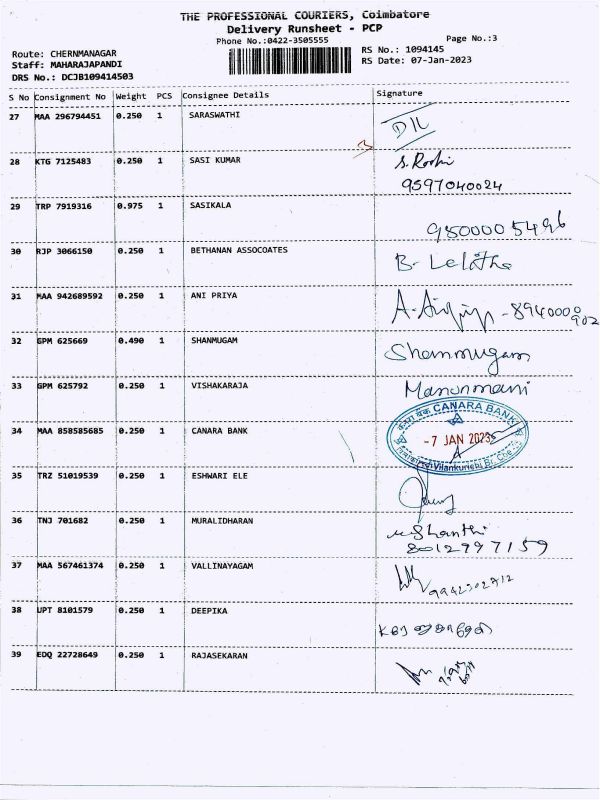 THE PROFESSIONAL COURIERS, Coimbatore
Delivery Runsheet - PCP
Phone No.:0422-3505555
Page No.:3
Route: CHERNMANAGAR
RS No.: 1094145
Staff: MAHARAJAPANDI
RS Date: 07-Jan-2023
DRS No.: DCJB109414503
S No Consignment No Weight PCS Consignee Details Signature
27 MAA 296794451 0.250 1 SARASWATHI
28 KTG 7125483 0.250 1 SASI KUMAR
9597040024
29 TRP 7919316 0.975 1 SASIKALA
9500005496
30 RJP 3066150 0.250 1 BETHANAN ASSOCOATES B. Lelitha
31 MAA 942689592 0.250 1 ANI PRIYA
32 GPM 625669 0.490 1 SHANMUGAM Shanmugam
33 GPM 625792 0.250 1 VISHAKARAJA Manonmani
34 MAA 858585685 0.250 1 CANARA BANK CANARA BANK
-7 JAN 2023
Vilankurichi Br. Cbe
35 TRZ 51019539 0.250 1 ESHWARI ELE
36 TNJ 701682 0.250 1 MURALIDHARAN
8012997159
37 MAA 567461374 0.250 1 VALLINAYAGAM
38 UPT 8101579 0.250 1 DEEPIKA
39 EDQ 22728649 0.250 1 RAJASEKARAN